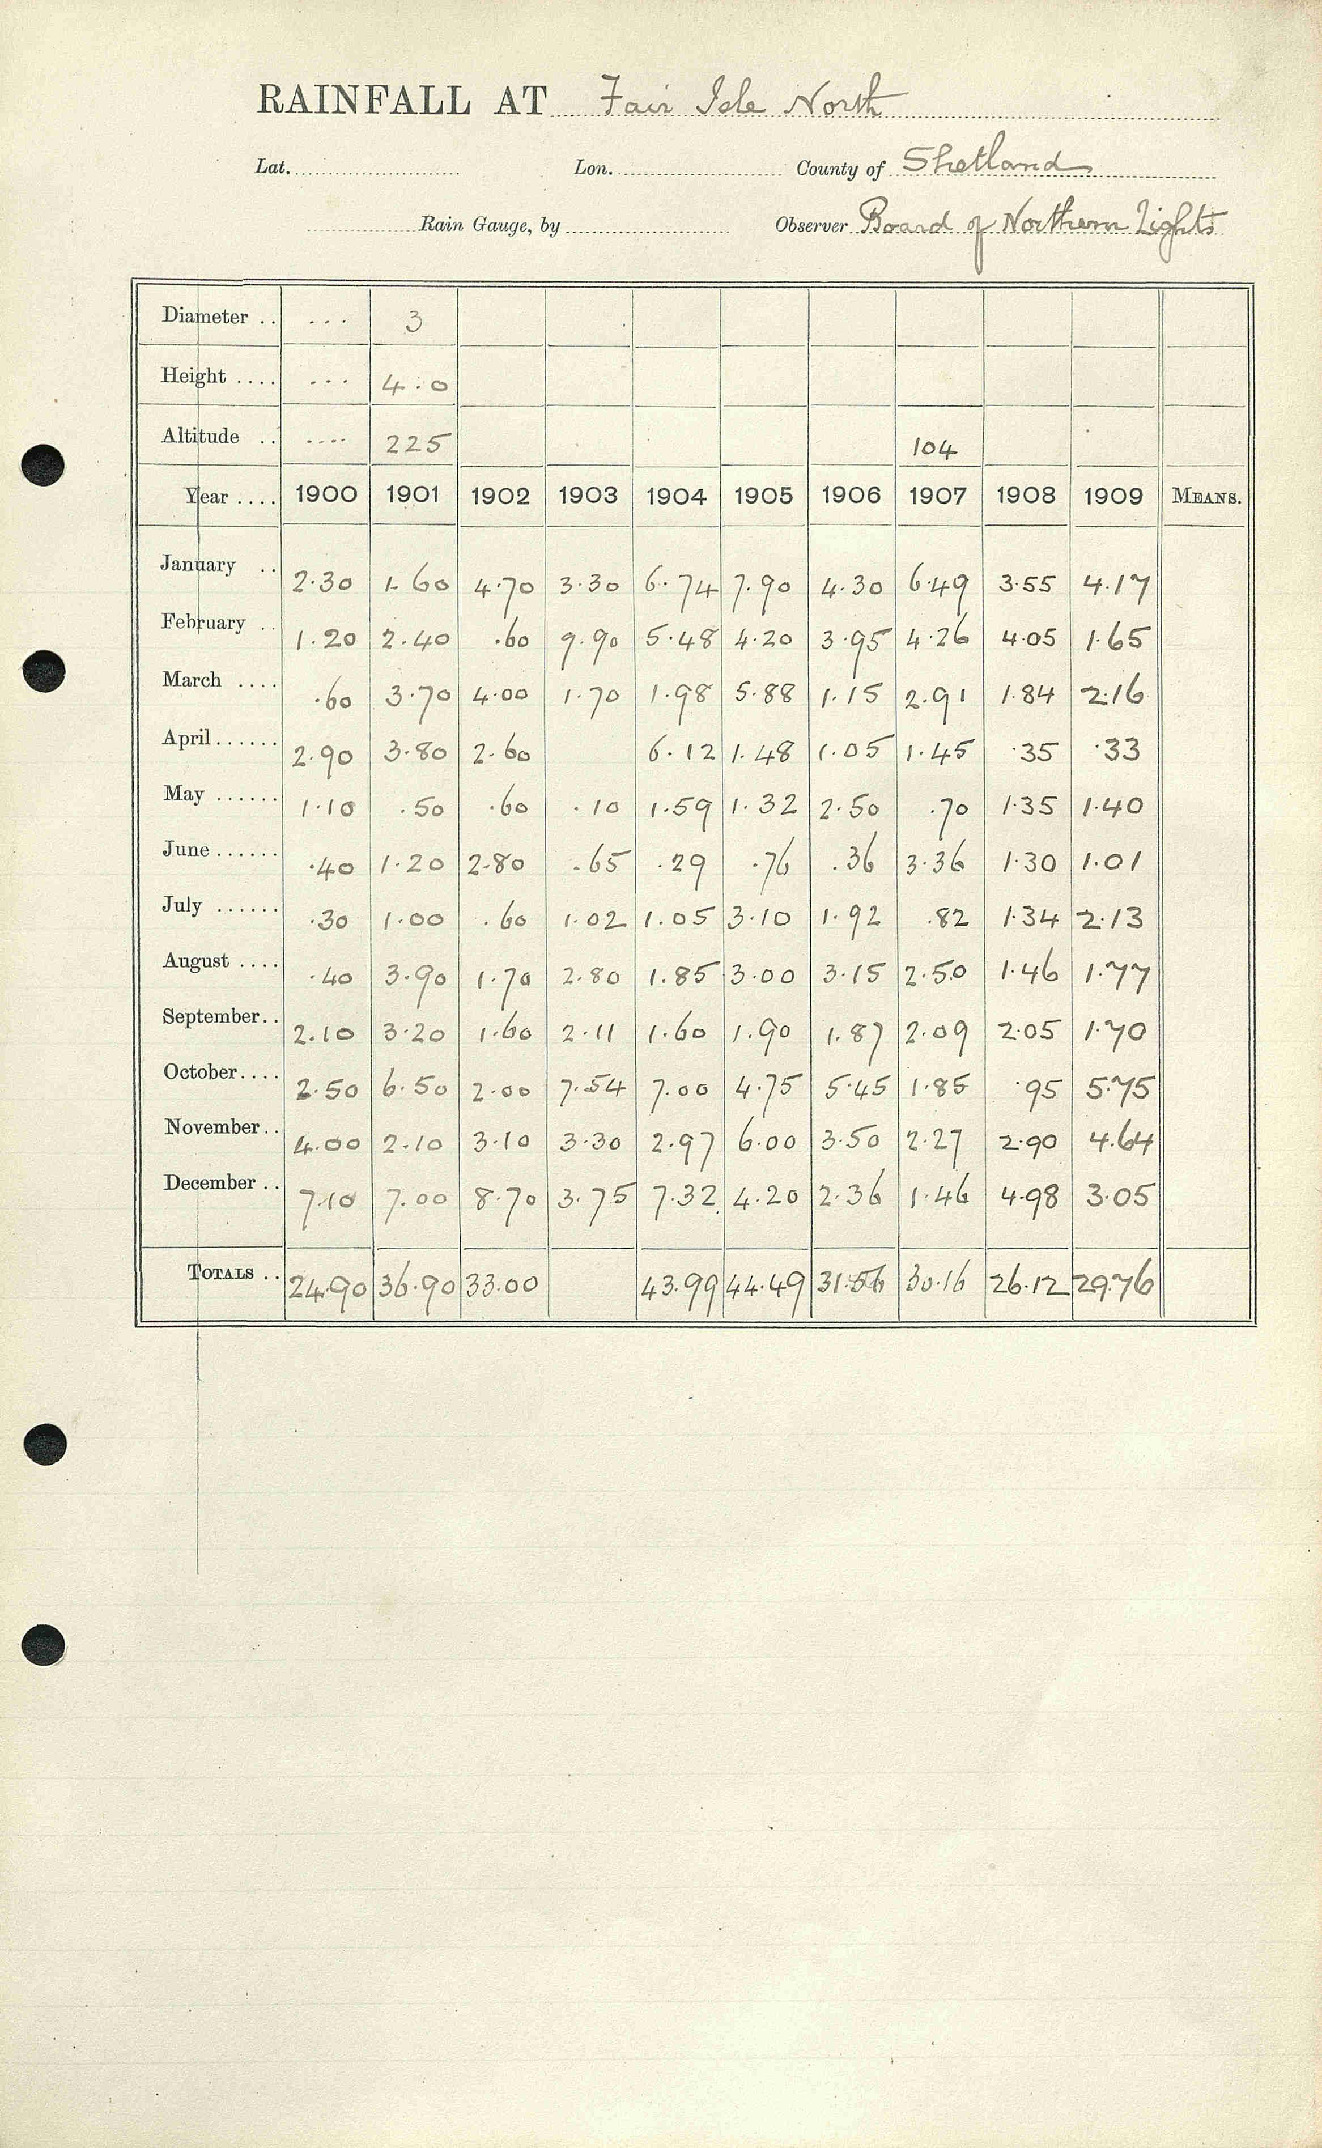 RAINFALL AT Fair Isle North
Lat. Lon. County of Shetland
Rain Gauge, by Observer Board of Northern Lights
Diameter .. ... 3
Height .... ... 4.0
Altitude .. .... 225 104
Year .... 1900 1901 1902 1903 1904 1905 1906 1907 1908 1909 MEANS.
January .. 2.30 1.60 4.70 3.30 6.74 7.90 4.30 6.49 3.55 4.17
February .. 1.20 2.40 .60 9.90 5.48 4.20 3.95 4.26 4.05 1.65
March .... .60 3.70 4.00 1.70 1.98 5.88 1.15 2.91 1.84 2.16
April...... 2.90 3.80 2.60 6.12 1.48 1.05 1.45 .35 .33
May ...... 1.10 .50 .60 .10 1.59 1.32 2.50 .70 1.35 1.40
June...... .40 1.20 2.80 .65 .29 .76 .36 3.36 1.30 1.01
July ...... .30 1.00 .60 1.02 1.05 3.10 1.92 .82 1.34 2.13
August .... .40 3.90 1.70 2.80 1.85 3.00 3.15 2.50 1.46 1.77
September.. 2.10 3.20 1.60 2.11 1.60 1.90 1.87 2.09 2.05 1.70
October.... 2.50 6.50 2.00 7.54 7.00 4.75 5.45 1.85 .95 5.75
November.. 4.00 2.10 3.10 3.30 2.97 6.00 3.50 2.27 2.90 4.64
December .. 7.10 7.00 8.70 3.75 7.32 4.20 2.36 1.46 4.98 3.05
TOTALS .. 24.90 36.90 33.00 43.99 44.49 31.56 30.16 26.12 29.76